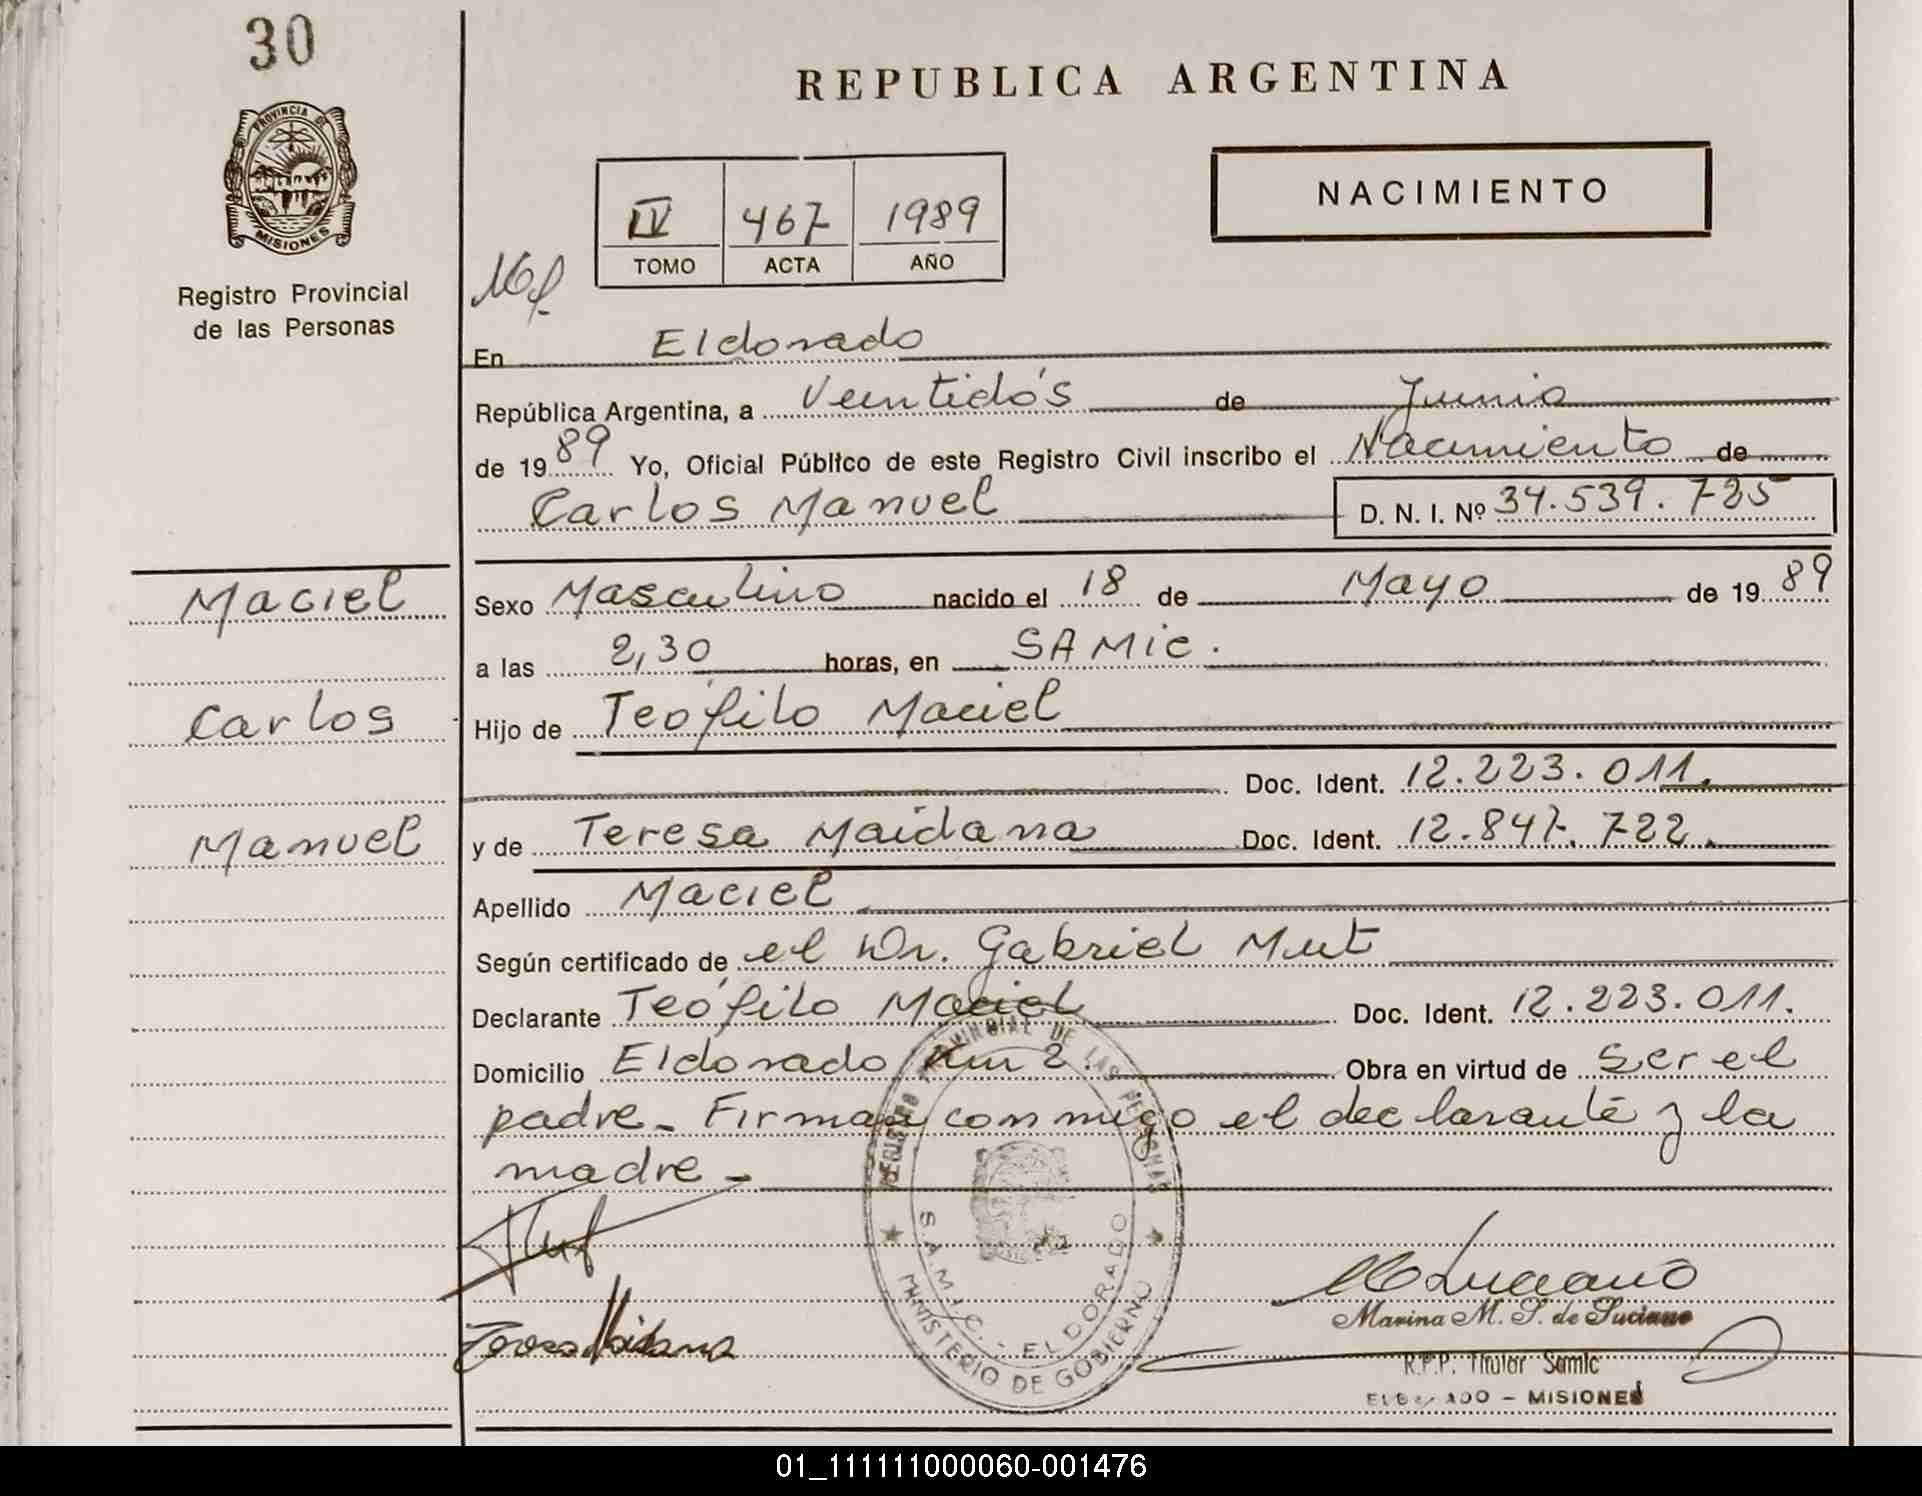 30
PROVINCIA DE
MISIONES
Registro Provincial
de las Personas
REPUBLICA ARGENTINA
NACIMIENTO
IV 467 1989
TOMO ACTA AÑO
En Eldorado
República Argentina, a Veintidós de Junio
de 1989 Yo, Oficial Público de este Registro Civil inscribo el Nacimiento de
Carlos Manuel D. N. I. Nº 34.539.725
Maciel
Carlos
Manuel
Sexo Masculino nacido el 18 de Mayo de 1989
a las 2,30 horas, en SAMIC.
Hijo de Teófilo Maciel
Doc. Ident. 12.223.011.
y de Teresa Maidana Doc. Ident. 12.847.722.
Apellido Maciel
Según certificado de el Dr. Gabriel Mut
Declarante Teófilo Maciel Doc. Ident. 12.223.011.
Domicilio Eldorado Km 2. Obra en virtud de ser el
padre_ Firman conmigo el declarante y la
madre_
REGISTRO PROVINCIAL DE LAS PERSONAS
S.A.M.I.C. - ELDORADO
MINISTERIO DE GOBIERNO
Teresa Maidana
Luciano
Marina M. S. de Luciano
R.P.P. Titular Samic
ELDORADO - MISIONES
01_111111000060-001476